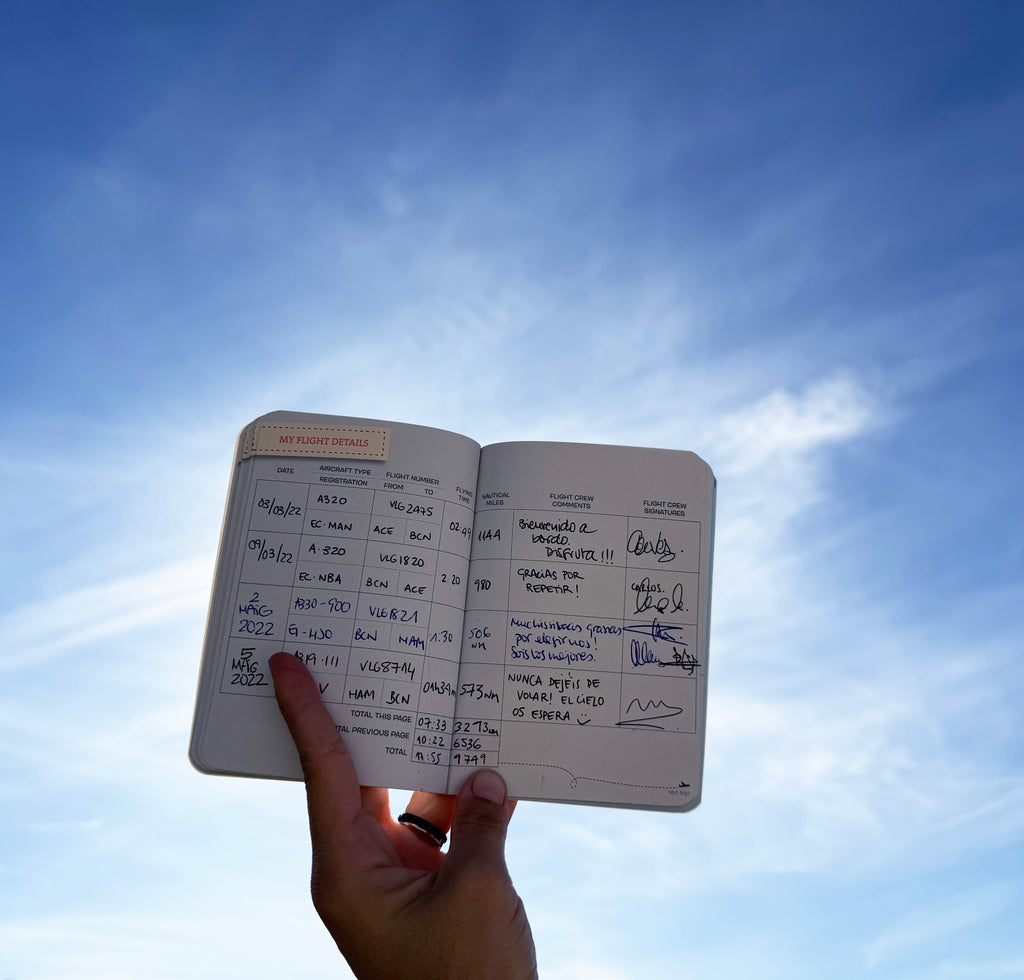 MY FLIGHT DETAILS
DATE AIRCRAFT TYPE REGISTRATION FLIGHT NUMBER FROM TO FLYING TIME NAUTICAL MILES FLIGHT CREW COMMENTS FLIGHT CREW SIGNATURES
03/03/22 A320 VLG2475 02:49 1144 Bienvenido a
EC-MAN ACE BCN bordo.
Disfruta!!!
09/03/22 A-320 VLG1820 2:20 980 GRACIAS POR
EC-NBA BCN ACE REPETIR! CARLOS.
2 MAIG 2022 A330-900 VLG1821 1:30 506 NM Muchísimas gracias
BCN HAM por elegirnos!
Sois los mejores.
5 MAG 2022 VLG8714 573NM NUNCA DEJÉIS DE
HAM BCN VOLAR! EL CIELO
OS ESPERA
TOTAL THIS PAGE 07:33 3273NM
TOTAL PREVIOUS PAGE 10:22 6536
TOTAL 17:55 9749
next trip!